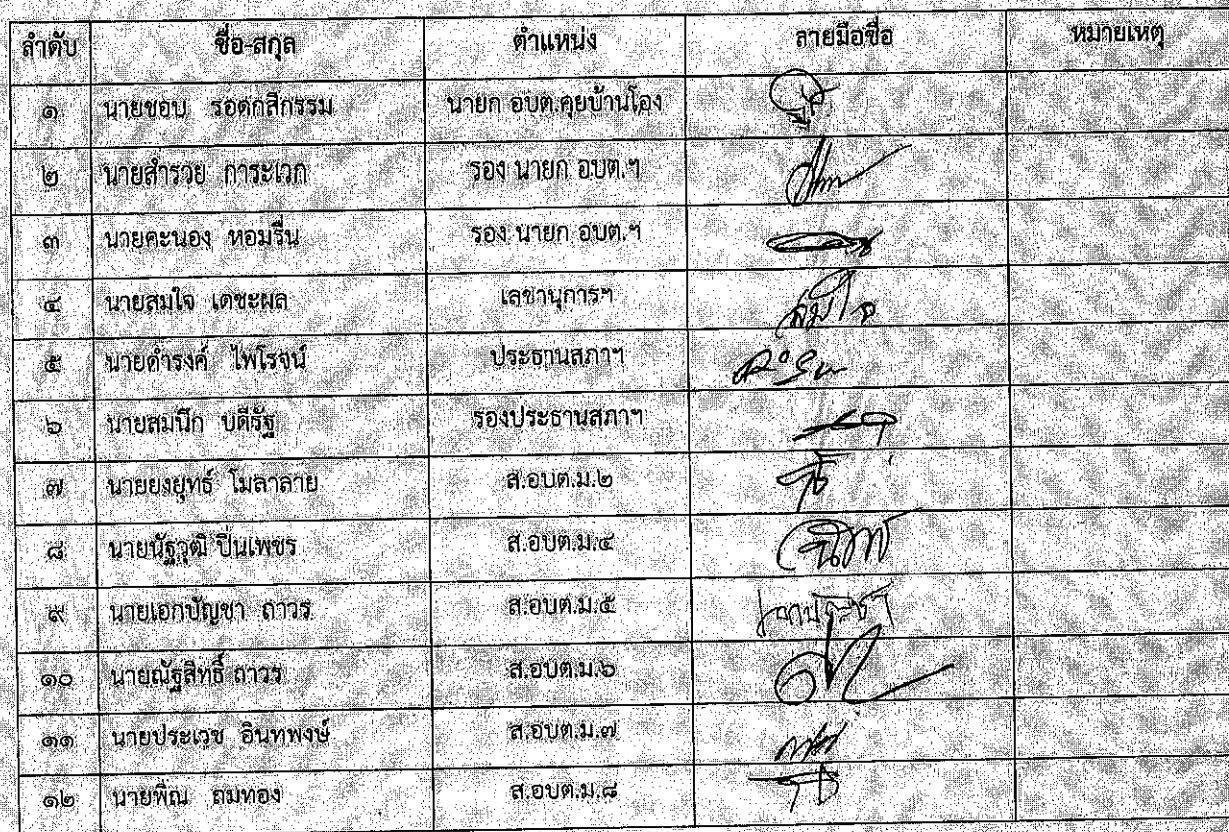 ลำดับ ชื่อ-สกุล ตำแหน่ง ลายมือชื่อ หมายเหตุ
๑ นายชอบ รอดกสิกรรม นายก อบต.คุยบ้านโอง
๒ นายสำรวย การะเวก รอง นายก อบต.ฯ
๓ นายคะนอง หอมรื่น รอง นายก อบต.ฯ
๔ นายสมใจ เดชะผล เลขานุการฯ สมใจ
๕ นายดำรงค์ ไพโรจน์ ประธานสภาฯ
๖ นายสมนึก บดีรัฐ รองประธานสภาฯ
๗ นายยงยุทธ์ โมลาลาย ส.อบต.ม.๒
๘ นายนัฐวุฒิ ปิ่นเพชร ส.อบต.ม.๔
๙ นายเอกบัญชา ถาวร ส.อบต.ม.๕
๑๐ นายณัฐสิทธิ์ ถาวร ส.อบต.ม.๖
๑๑ นายประเวช อินทพงษ์ ส.อบต.ม.๗
๑๒ นายพิณ ถมทอง ส.อบต.ม.๘